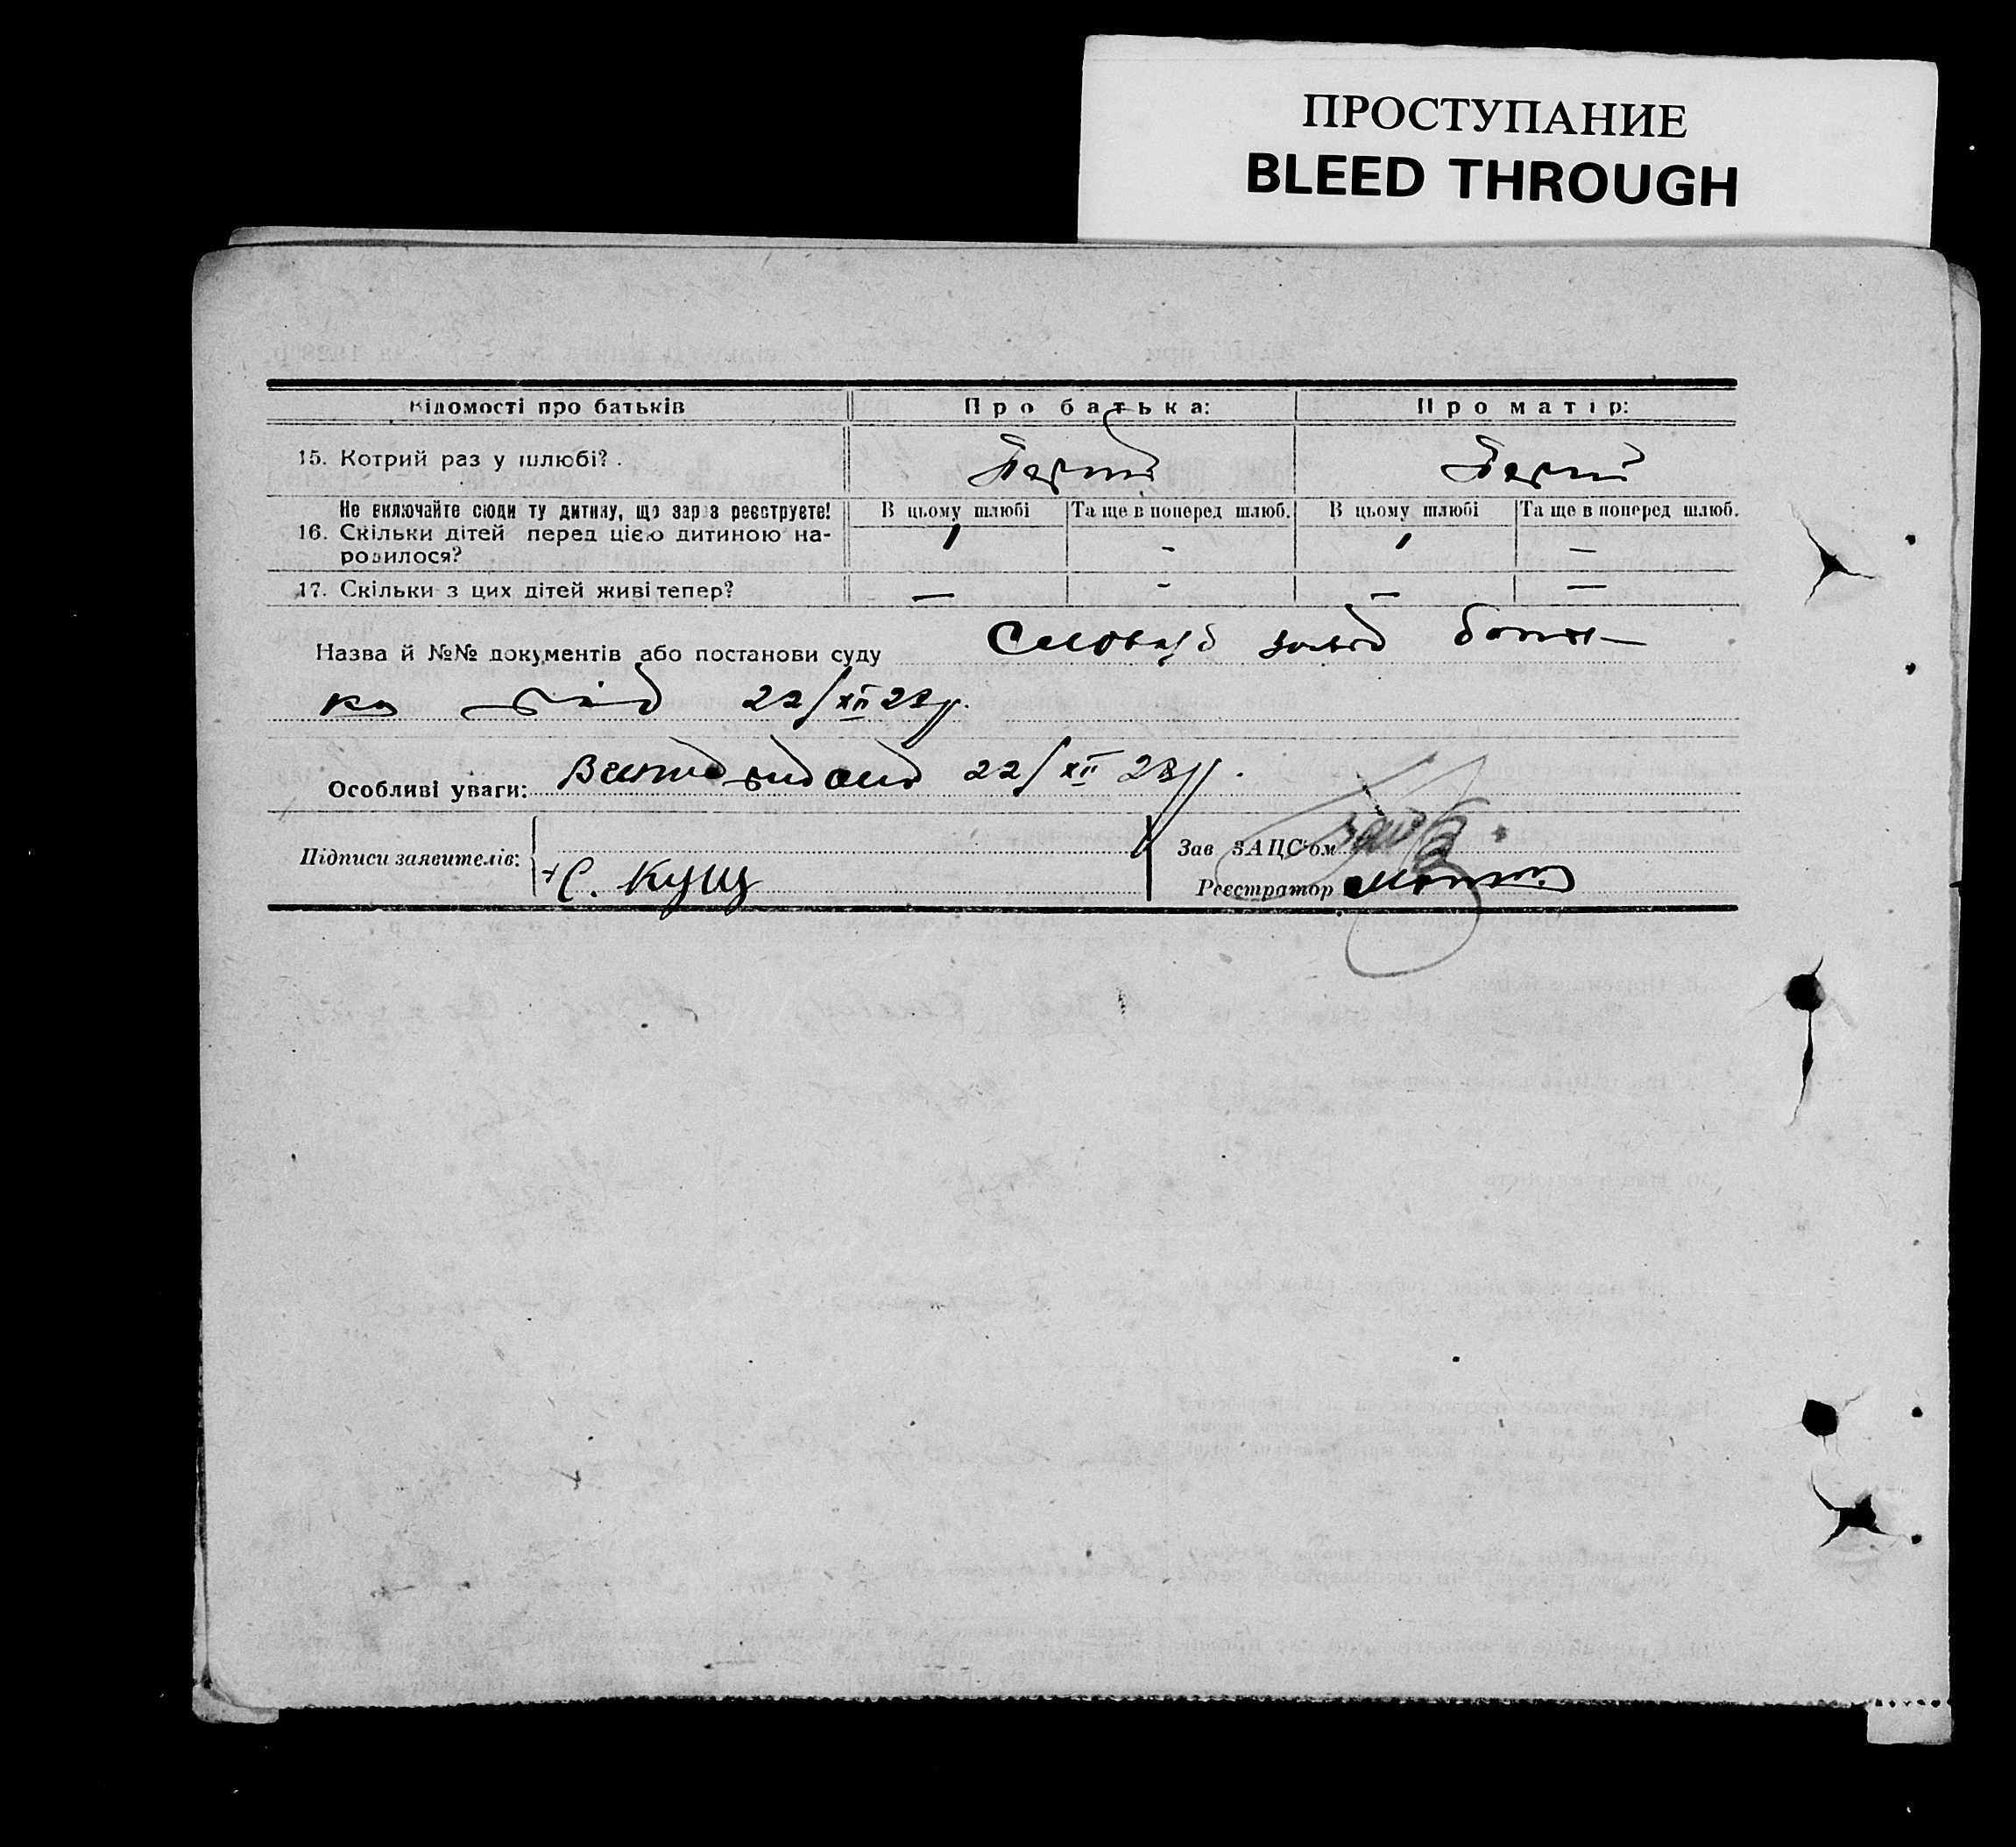 ПРОСТУПАНИЕ
BLEED THROUGH
Відомості про батьків Про батька: Про матір:
15. Котрий раз у шлюбі? Перший Перший
Не включайте сюди ту дитину, що зараз реєструєте! В цьому шлюбі Та ще в поперед шлюб. В цьому шлюбі Та ще в поперед шлюб.
16. Скільки дітей перед цією дитиною на- 1 - 1 —
родилося?
17. Скільки з цих дітей живі тепер? — - — —
Назва й №№ документів або постанови суду Словесна заява бать-
ка від 22/XII 28 р.
Особливі уваги: 22/XII 28 р.
Підписи заявителів: Зав ЗАЦС'ом
+ С. Кущ Реєстратор